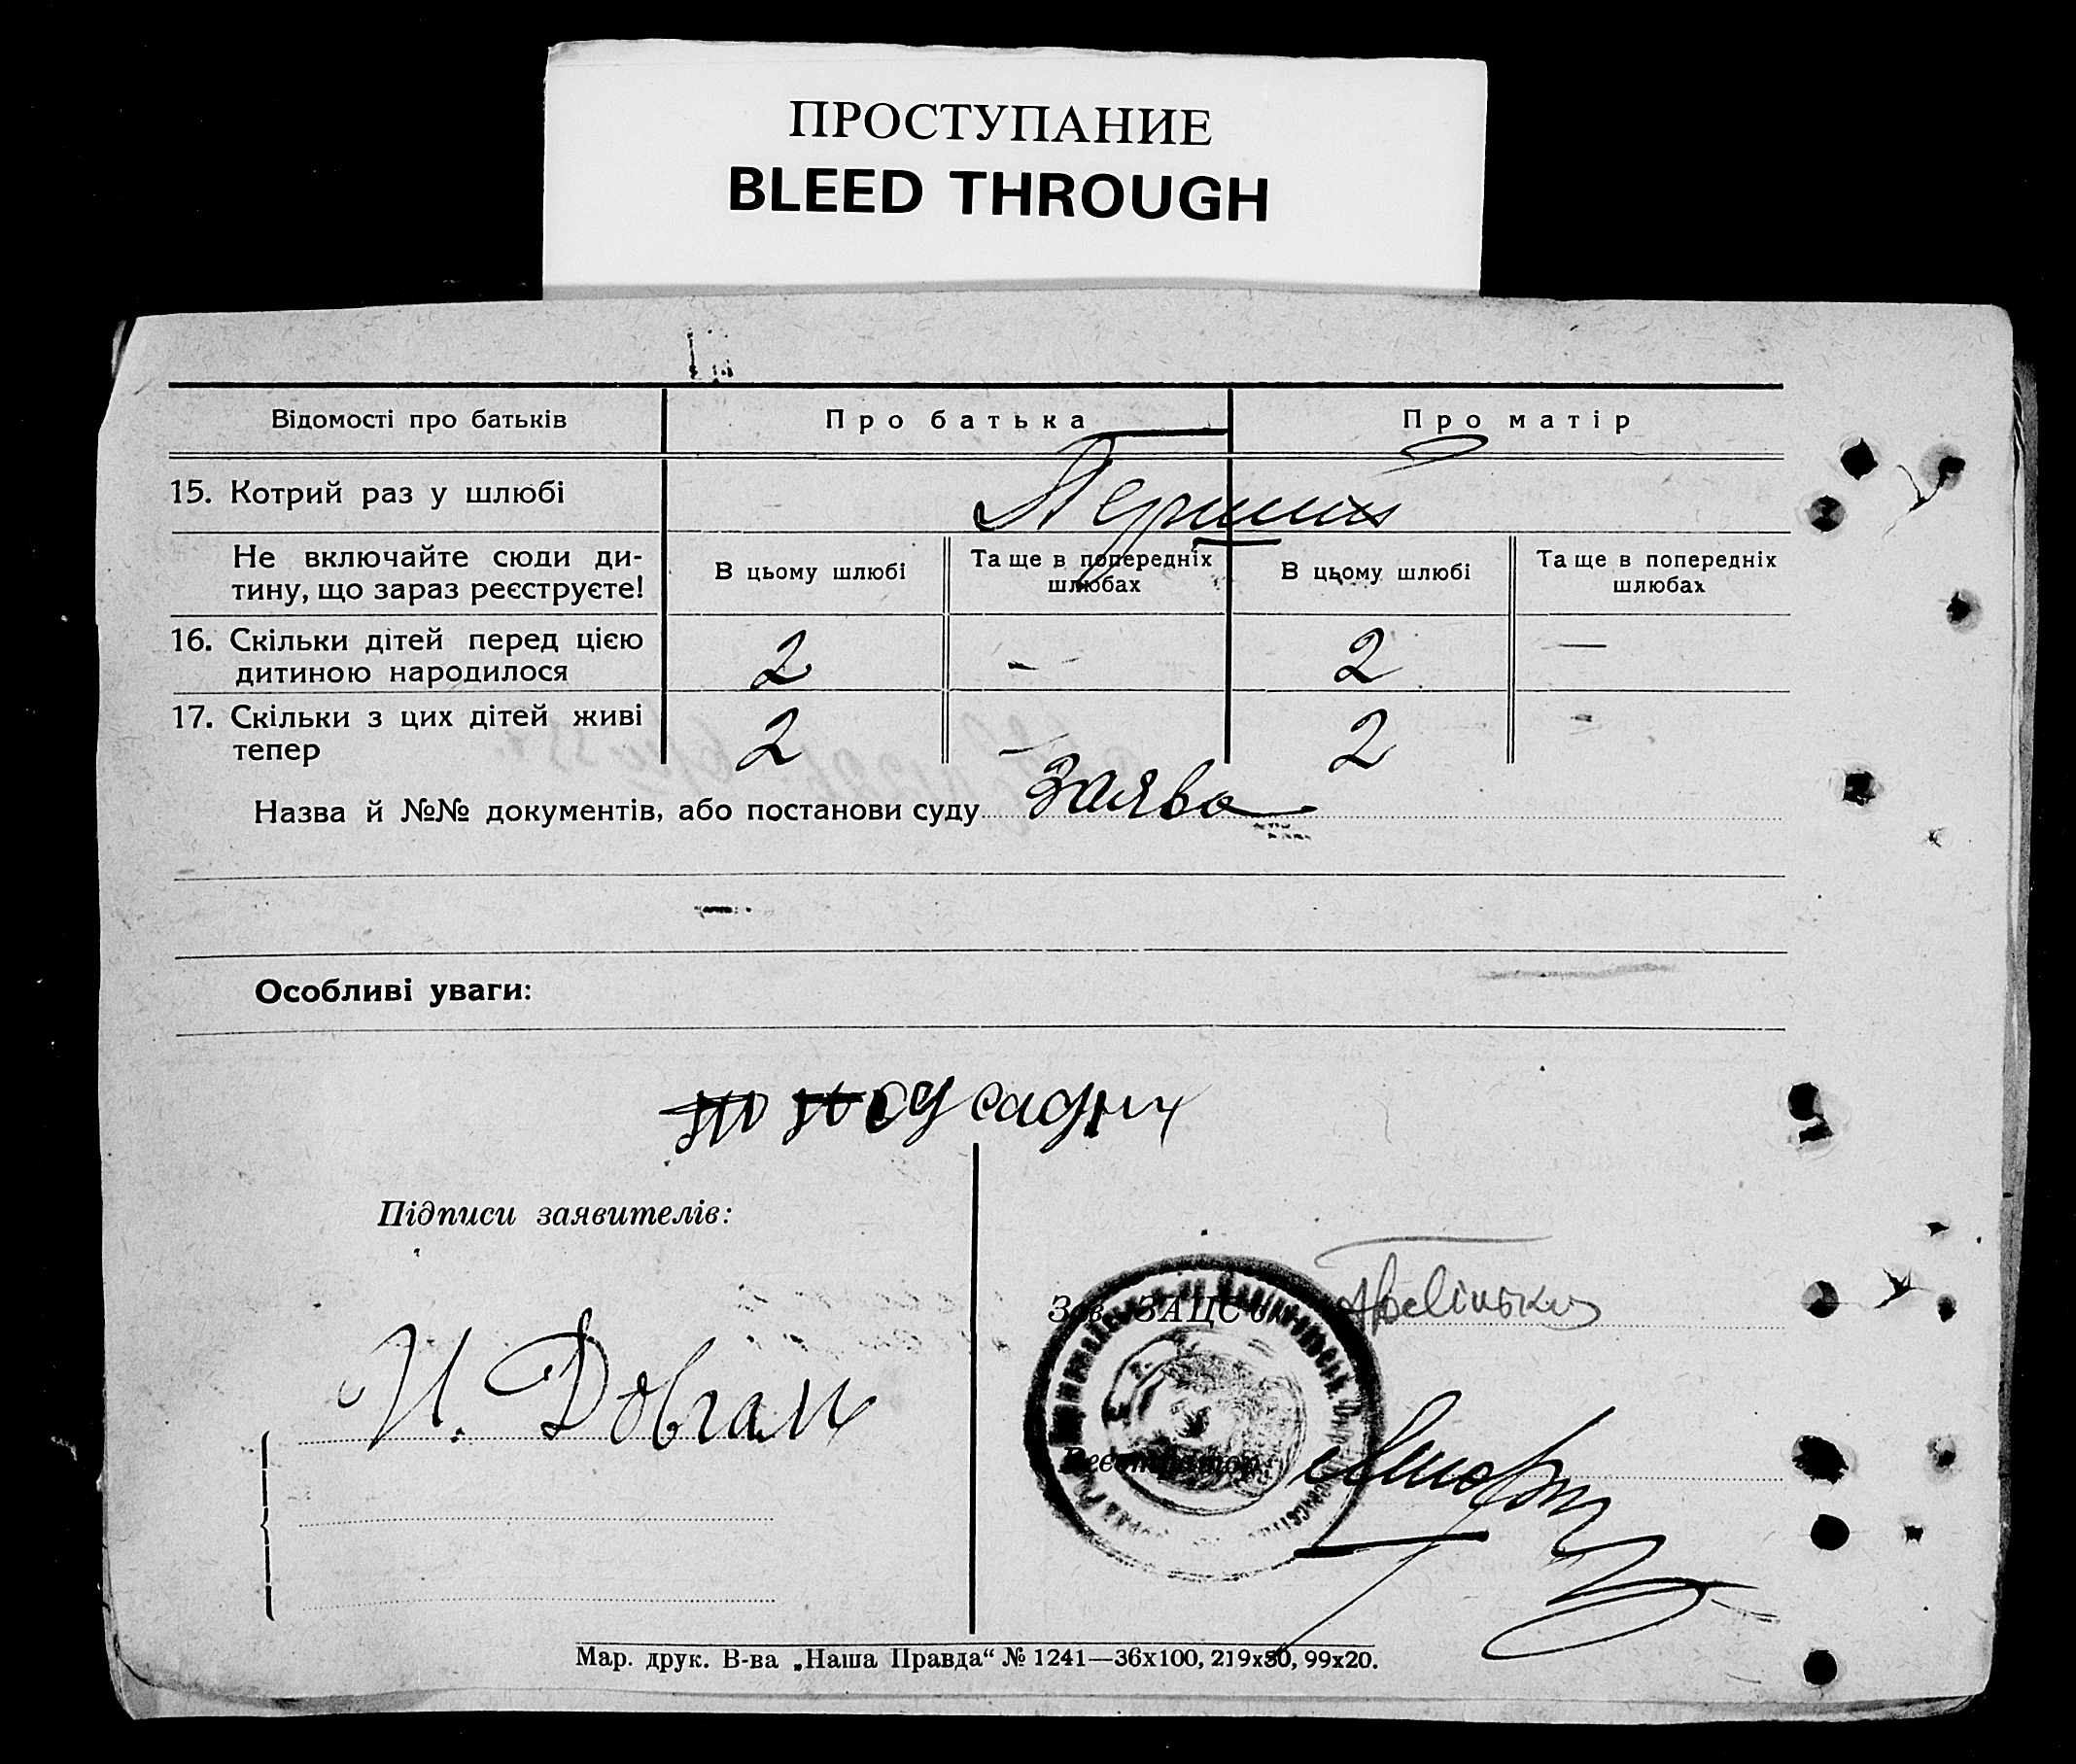 ПРОСТУПАНИЕ
BLEED THROUGH
Відомості про батьків Про батька Про матір
15. Котрий раз у шлюбі Перший
Не включайте сюди ди-
тину, що зараз реєструєте!
В цьому шлюбі Та ще в попередніх В цьому шлюбі Та ще в попередніх
шлюбах шлюбах
16. Скільки дітей перед цією
дитиною народилося 2 - 2 —
17. Скільки з цих дітей живі
тепер 2 — 2 -
Назва й №№ документів, або постанови суду Заява
Особливі уваги:
Підписи заявителів:
Зав. ЗАЦС'ом
И. Довгаль
Реєстратор
Мар. друк. В-ва „Наша Правда“ № 1241—36х100, 219х50, 99х20.